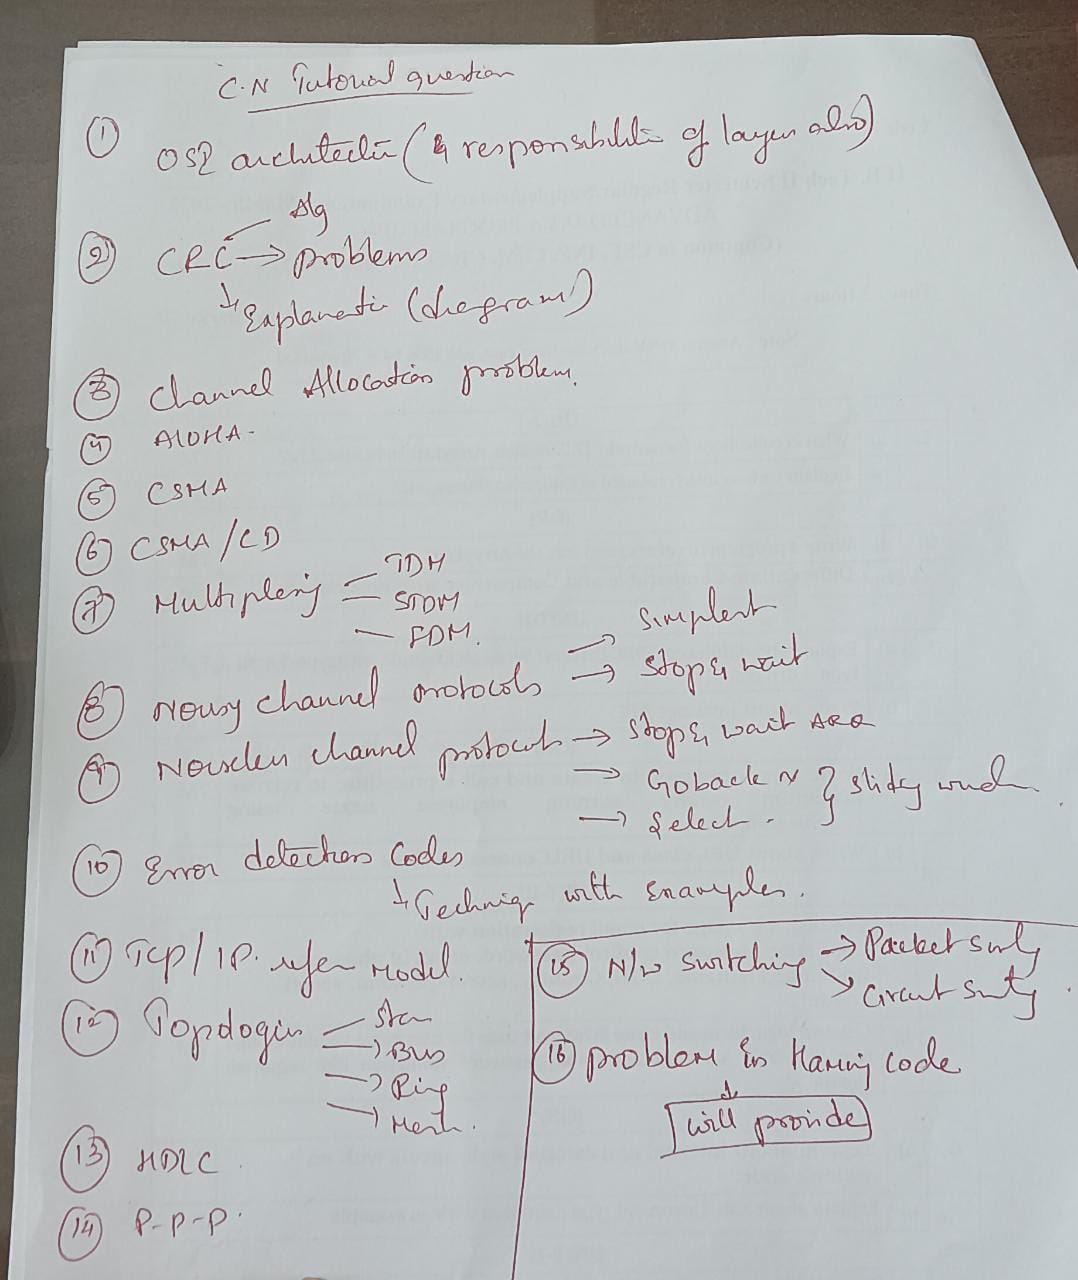 C.N Tutorial question
① OSI architectu (& responsibilitis of layer also)
Alg
② CRC → problems
Explanati (diagram)
③ Channel Allocation problem.
④ ALOHA -
⑤ CSMA
⑥ CSMA/CD
⑦ Multiplexing
TDM
STDM
FDM.
⑧ Noisy channel protocols
→ Simplest
→ Stop & wait
⑨ Noiseless channel protocols
→ Stop & wait ARQ
→ Goback N
→ Select.
} Slidig wind
⑩ Error detection Codes
Techniq with Examples.
⑪ TCP/IP. refer Model.
⑫ Topologies
Star
→ Bus
→ Ring
→ Mesh.
⑬ HDLC.
⑭ P-P-P.
⑮ N/w switching
→ Packet
→ Circuit
⑯ problem in Haming code
will provide